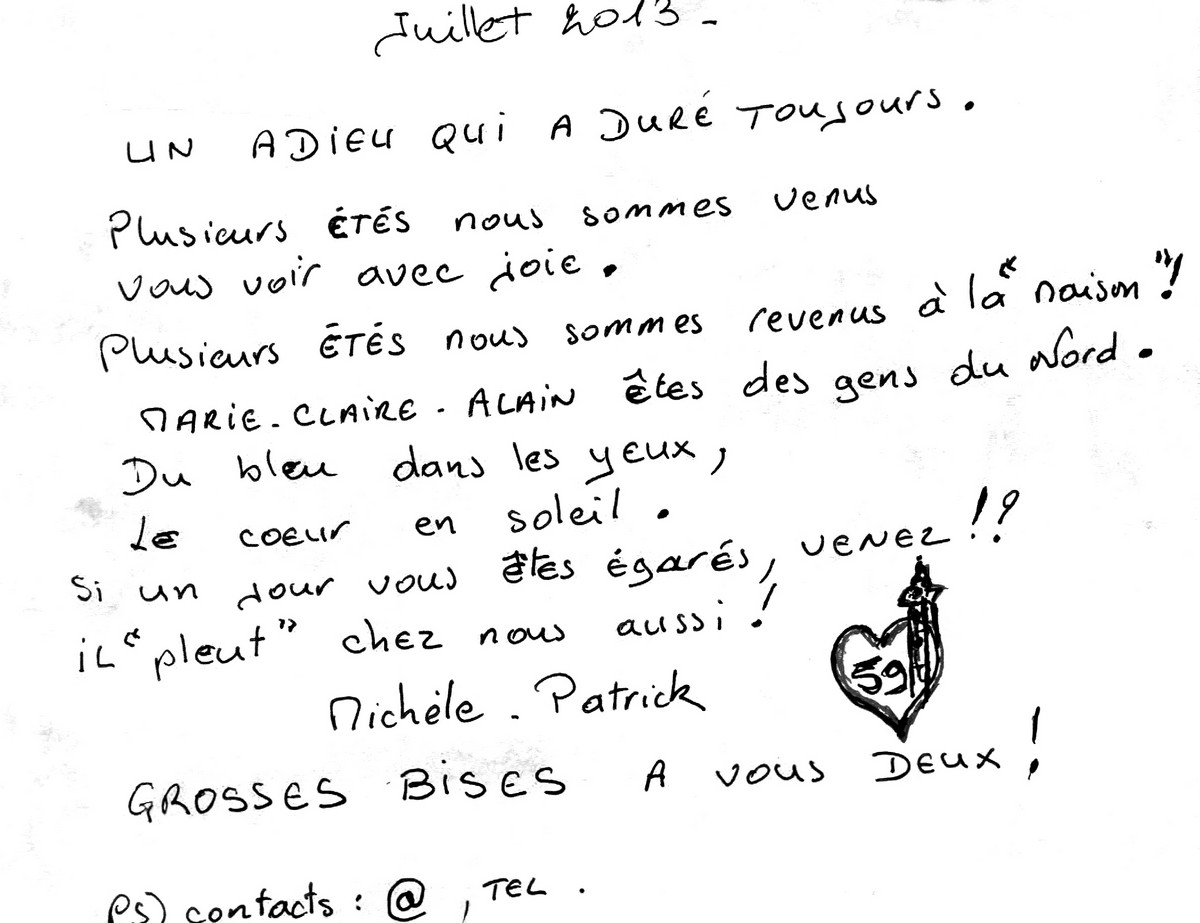 Juillet 2013 -
UN ADIEU QUI A DURÉ TOUJOURS.
Plusieurs ÉTÉS nous sommes venus
vous voir avec joie.
Plusieurs ÉTÉS nous sommes revenus à la "maison"!
MARIE-CLAIRE - ALAIN êtes des gens du Nord.
Du bleu dans les yeux,
Le coeur en soleil.
Si un jour vous êtes égarés, VENEZ!?
il "pleut" chez nous aussi!
59
Michèle - Patrick
GROSSES BISES A VOUS DEUX!
PS) contacts : @, TEL.